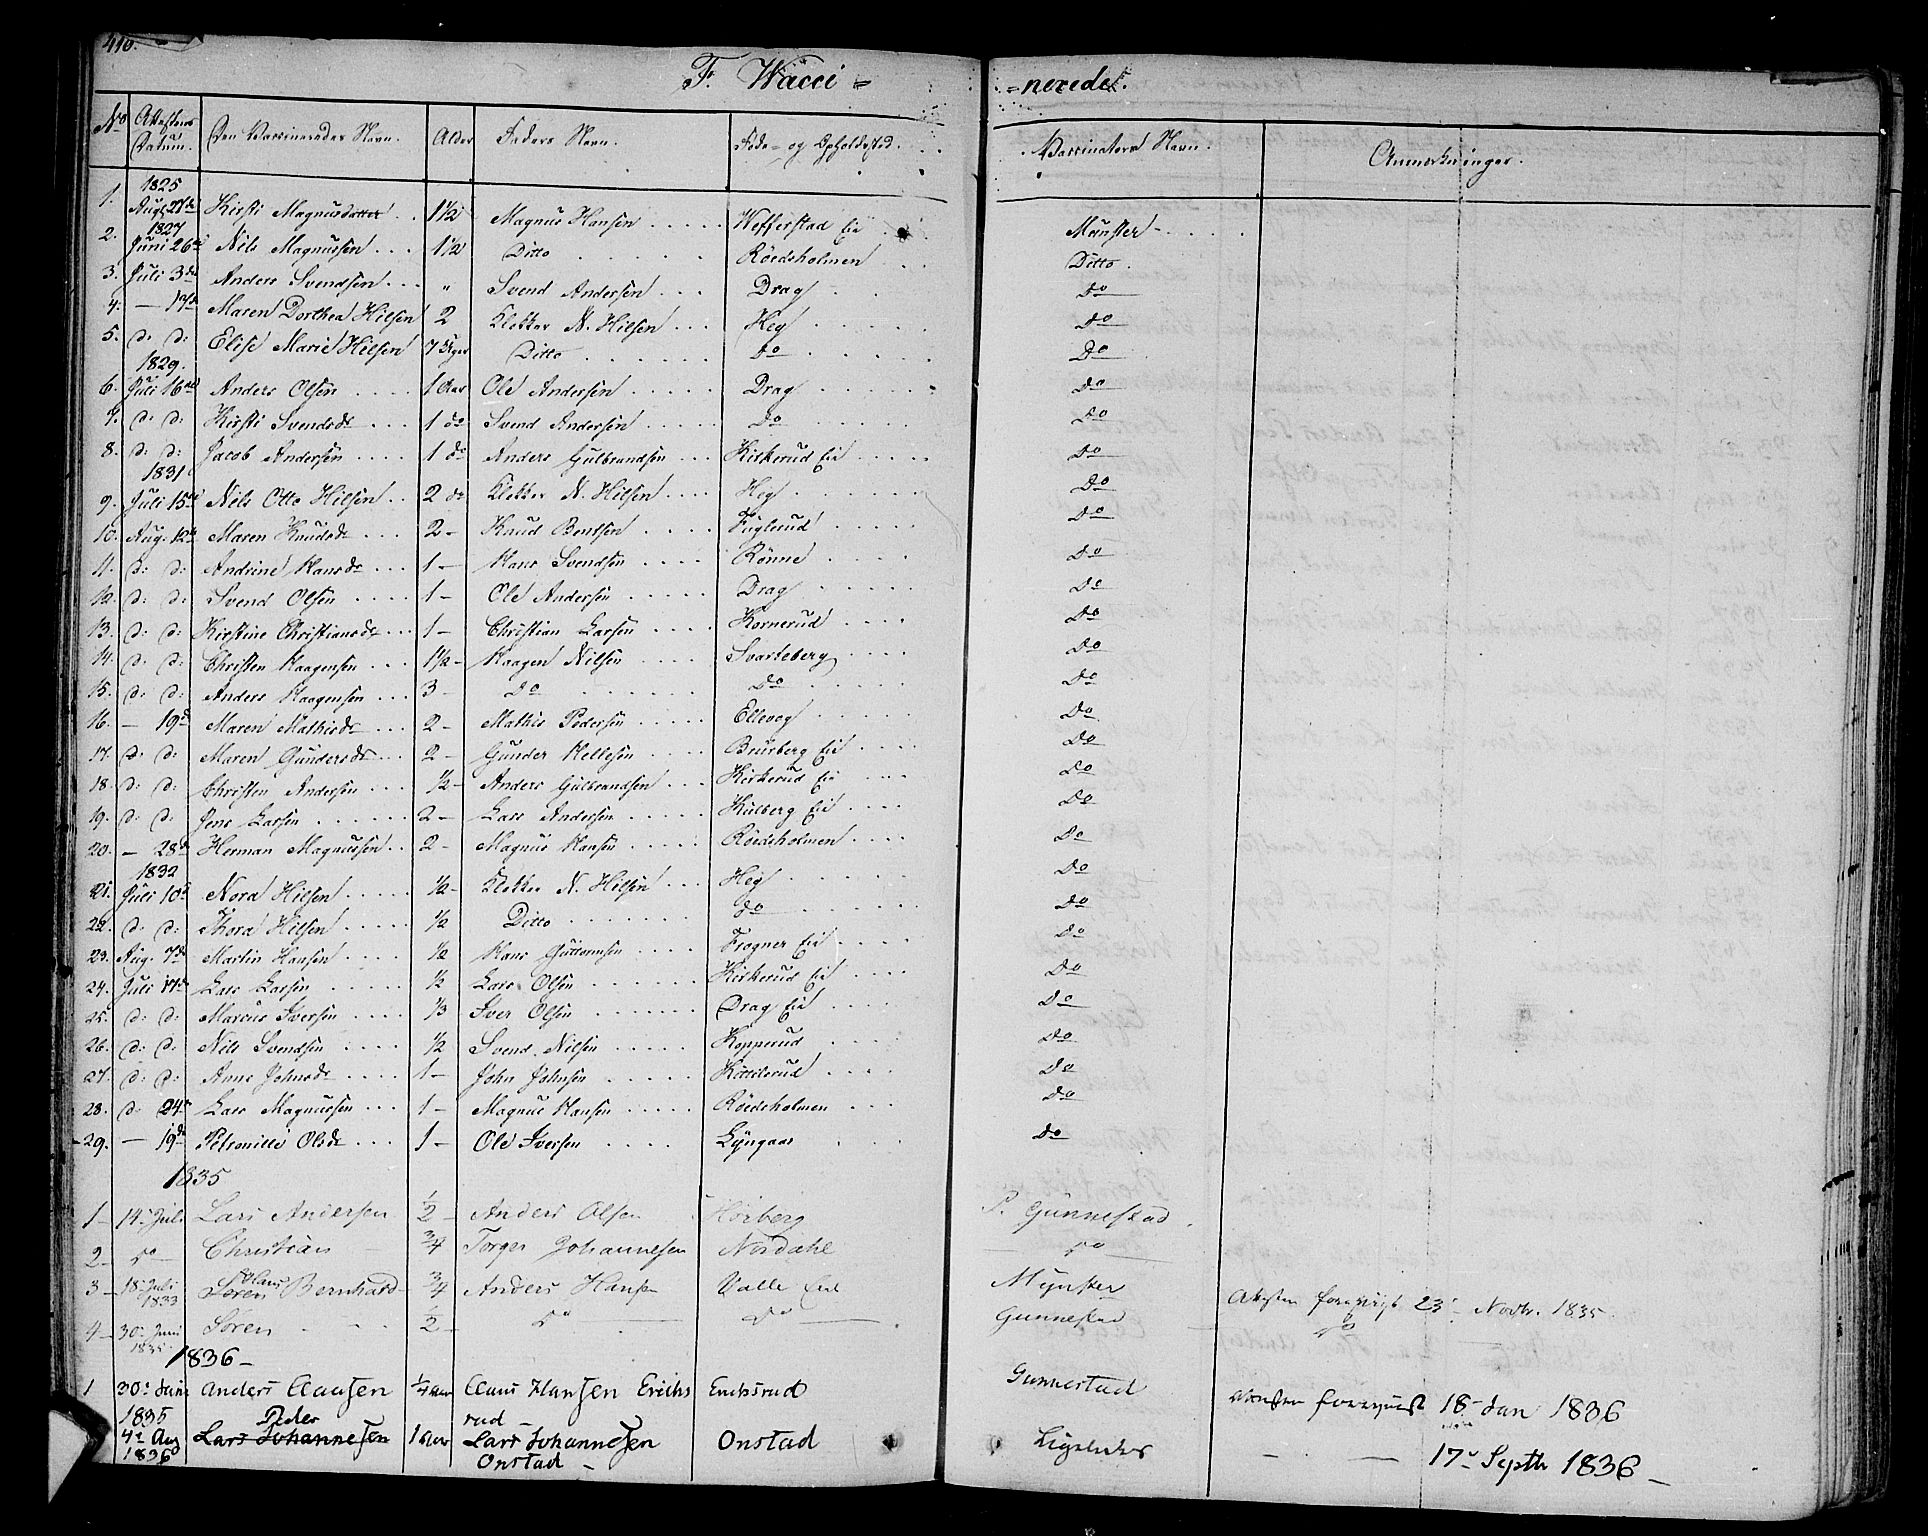 410.
F. Wacci= =nerede.
No Attestens Datum. Den Vaccineredes Navn. Alder Faders Navn. Føde- og Opholdssted. Vaccinateurs Navn. Anmærkninger.
1825
1. Aug. 27de Kirsti Magnusdatter . . 1½ Magnus Hansen . . . . . Wefferstad Eie Münster . . . .
1827
2. Juni 26de Nils Magnussen . . . 1½ Ditto . . . . . . Röedsholmen . . . Ditto.
3. Juli 3de Anders Svendsen . . . " Svend Andersen . . . Drag . . Do
4. — 17de Maren Dorthea Hilsen 2 Klokker N. Hilsen . . . Heg . . . . . Do
5. d: d: Elise Marie Hilsen 7 Uger Ditto . . . . . . Do . . . . . Do
1829.
6. Juli 16de Anders Olsen . . . . 1 Aar Ole Andersen . . . . . Drag . . . . . Do
7. d: d: Kirsti Svendsdr . . . 1 do Svend Andersen . . . . . Do . . . . . Do
8. d: d: Jacob Andersen . . . . 1 do Anders Gulbrandsen . . . Kirkerud Eie . . . . . Do
1831
9. Juli 15de Nils Otto Hilsen . . 2 do Klokker N. Hilsen . . . . Heg . . . . . Do
10. Aug. 12te Maren Knudsdr . . . 2 - Knud Bentsen . . . . Fuglerud . . . . . Do
11. d: d: Andrine Hansdr . . . 1 - Hans Svendsen . . . . Rönne . . . . Do
12. d: d: Svend Olsen . . . . 1 - Ole Andersen . . . . . Drag . . . . . Do
13. d: d: Kirstine Christiansdr . . . 1 - Christian Larsen . . . . Kornerud . . . . Do
14. d: d: Christen Haagensen . . . 1½ - Haagen Nilsen . . . . . Svarteberg . . . . Do
15. d: d: Anders Haagensen . . . 3 - Do . . . . . . Do . . . . . Do
16. — 19de Maren Mathisdr . . . 2 - Mathis Pedersen . . . . Ellevog . . . . . Do
17. d: d: Maren Gundersdr . . . 2 - Gunder Kellesen . . . . Brürberg Eie . . . . Do
18. d: d: Christen Andersen . . . ½ - Anders Gulbrandsen . . . Kirkerud Eie . . . . Do
19. d: d: Jens Larsen . . . . . . 2 - Lars Andersen . . . . . Kulberg Eie . . . . Do
20. — 28de Herman Magnussen . . 2 - Magnus Hansen . . . . . Röedsholmen . . . . Do
1832
21. Juli 10de Nora Hilsen . . . . ½ - Klokker N. Hilsen . . . Heg . . . . . Do
22. d: d: Thora Hilsen . . . . ½ Ditto . . . . . . . do . . . . . . Do
23. Aug. 7de Martin Hansen . . . . ½ Hans Guttormsen . . . . Frogner Eie . . . . Do
24. Juli 17de Lars Larsen . . . . ½ Lars Olsen . . . . . . Kirkerud Eie . . . . Do
25. d: d: Marcus Iversen . . . . ⅓ Iver Olsen . . . . . . . Drag Eie . . . . Do
26. d: d: Nils Svendsen . . . . ½ Svend Nilsen . . . . . Kopperud . . . . Do
27. d: d: Anne Johnsdr . . . . 1 - John Johnsen . . . . . Kittilsrud . . . . Do
28. d: 24de Lars Magnussen . . . 1 - Magnus Hansen . . . . Röedsholmen . . . Do
29. — 19de Petronille Olsdr . . . . 1 - Ole Iversen . . . . . Lyngaas . . . . Do
1835
1 - 14. Juli Lars Andersen ½ - Anders Olsen Horberg P. Gunnestad
2 - Do Christian ¾ Torger Johannesen Nordahl Do
3 - 18. Juli 1833 Hans Sören Bernhard ¾ Anders Hansen Valle Eie Mynster Attesten foreviist 23. Novbr. 1835
4 - 30. Juni 1835 Sören ½ - Do Do Gunnestad Do
1836 -
1 30. Juni 1835 Anders Clausen ¼ Aar Claus Hansen Erichsrud Erichsrud Gunnestad Attesten foreviist 18 - Jan 1836
4. Aug 1836 Peder Lars Johannesen 1 Aar Lars Johannesen Onstad - Onstad Ligeledes - — 17. Septb 1836 -